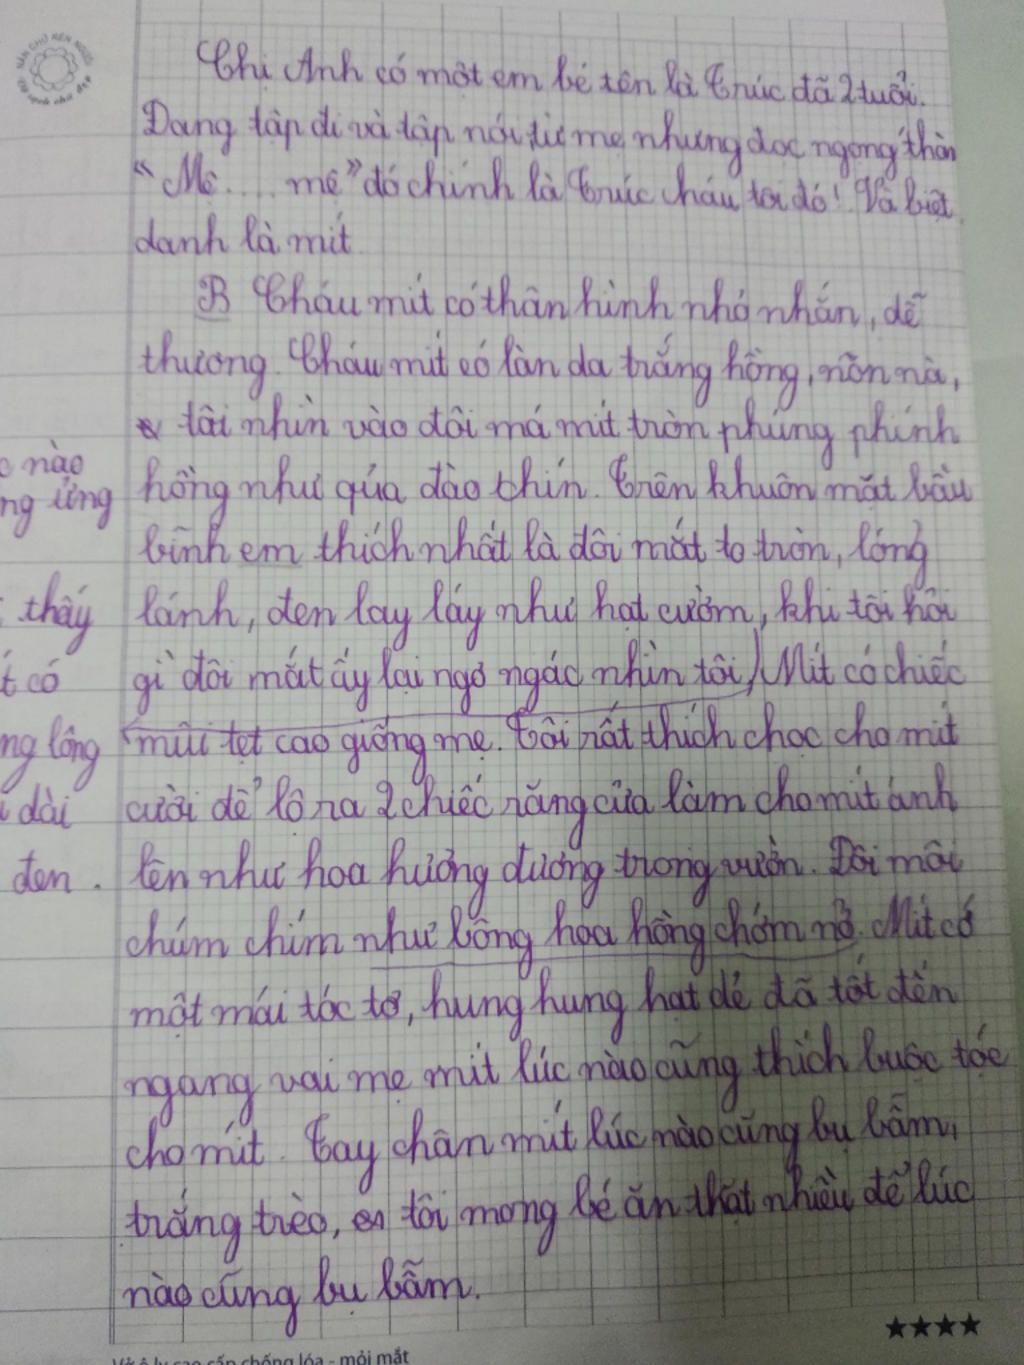 NẮN CHỮ RÈN NGƯỜI
Chị Anh có một em bé tên là Trúc đã 2 tuổi.
Đang tập đi và tập nói, từ mẹ nhưng đọc ngọng thàn
"Mệ.... mệ" đó chính là Trúc cháu tôi đó! Và biệt
danh là mít
B Cháu mít có thân hình nhỏ nhắn, dễ
thương. Cháu mít có làn da trắng hồng, nõn nà,
tôi nhìn vào đôi má mít tròn phúng phính
c nào
hồng như qủa đào chín. Trên khuôn mặt bầu
ng ửng
bĩnh em thích nhất là đôi mắt to tròn, lóng
thấy
lánh, đen lay láy như hạt cườm, khi tôi hỏi
t có
gì đôi mắt ấy lại ngơ ngác nhìn tôi. Mít có chiếc
ng lông
mũi tẹt cao giống mẹ. Tôi rất thích chọc cho mít
dài
cười để lộ ra 2 chiếc răng cửa làm cho mít ánh
đen.
lên như hoa hướng dương trong vườn. Đôi môi
chúm chím như bông hoa hồng chớm nở. Mít có
một mái tóc tơ, hung hung hạt dẻ đã tốt đến
ngang vai mẹ mít lúc nào cũng thích buộc tóc
cho mít. Tay chân mít lúc nào cũng bụ bẫm,
trắng trẻo, tôi mong bé ăn thật nhiều để lúc
nào cũng bụ bẫm.
★★★★
Vở ô ly cao cấp chống lóa - mỏi mắt